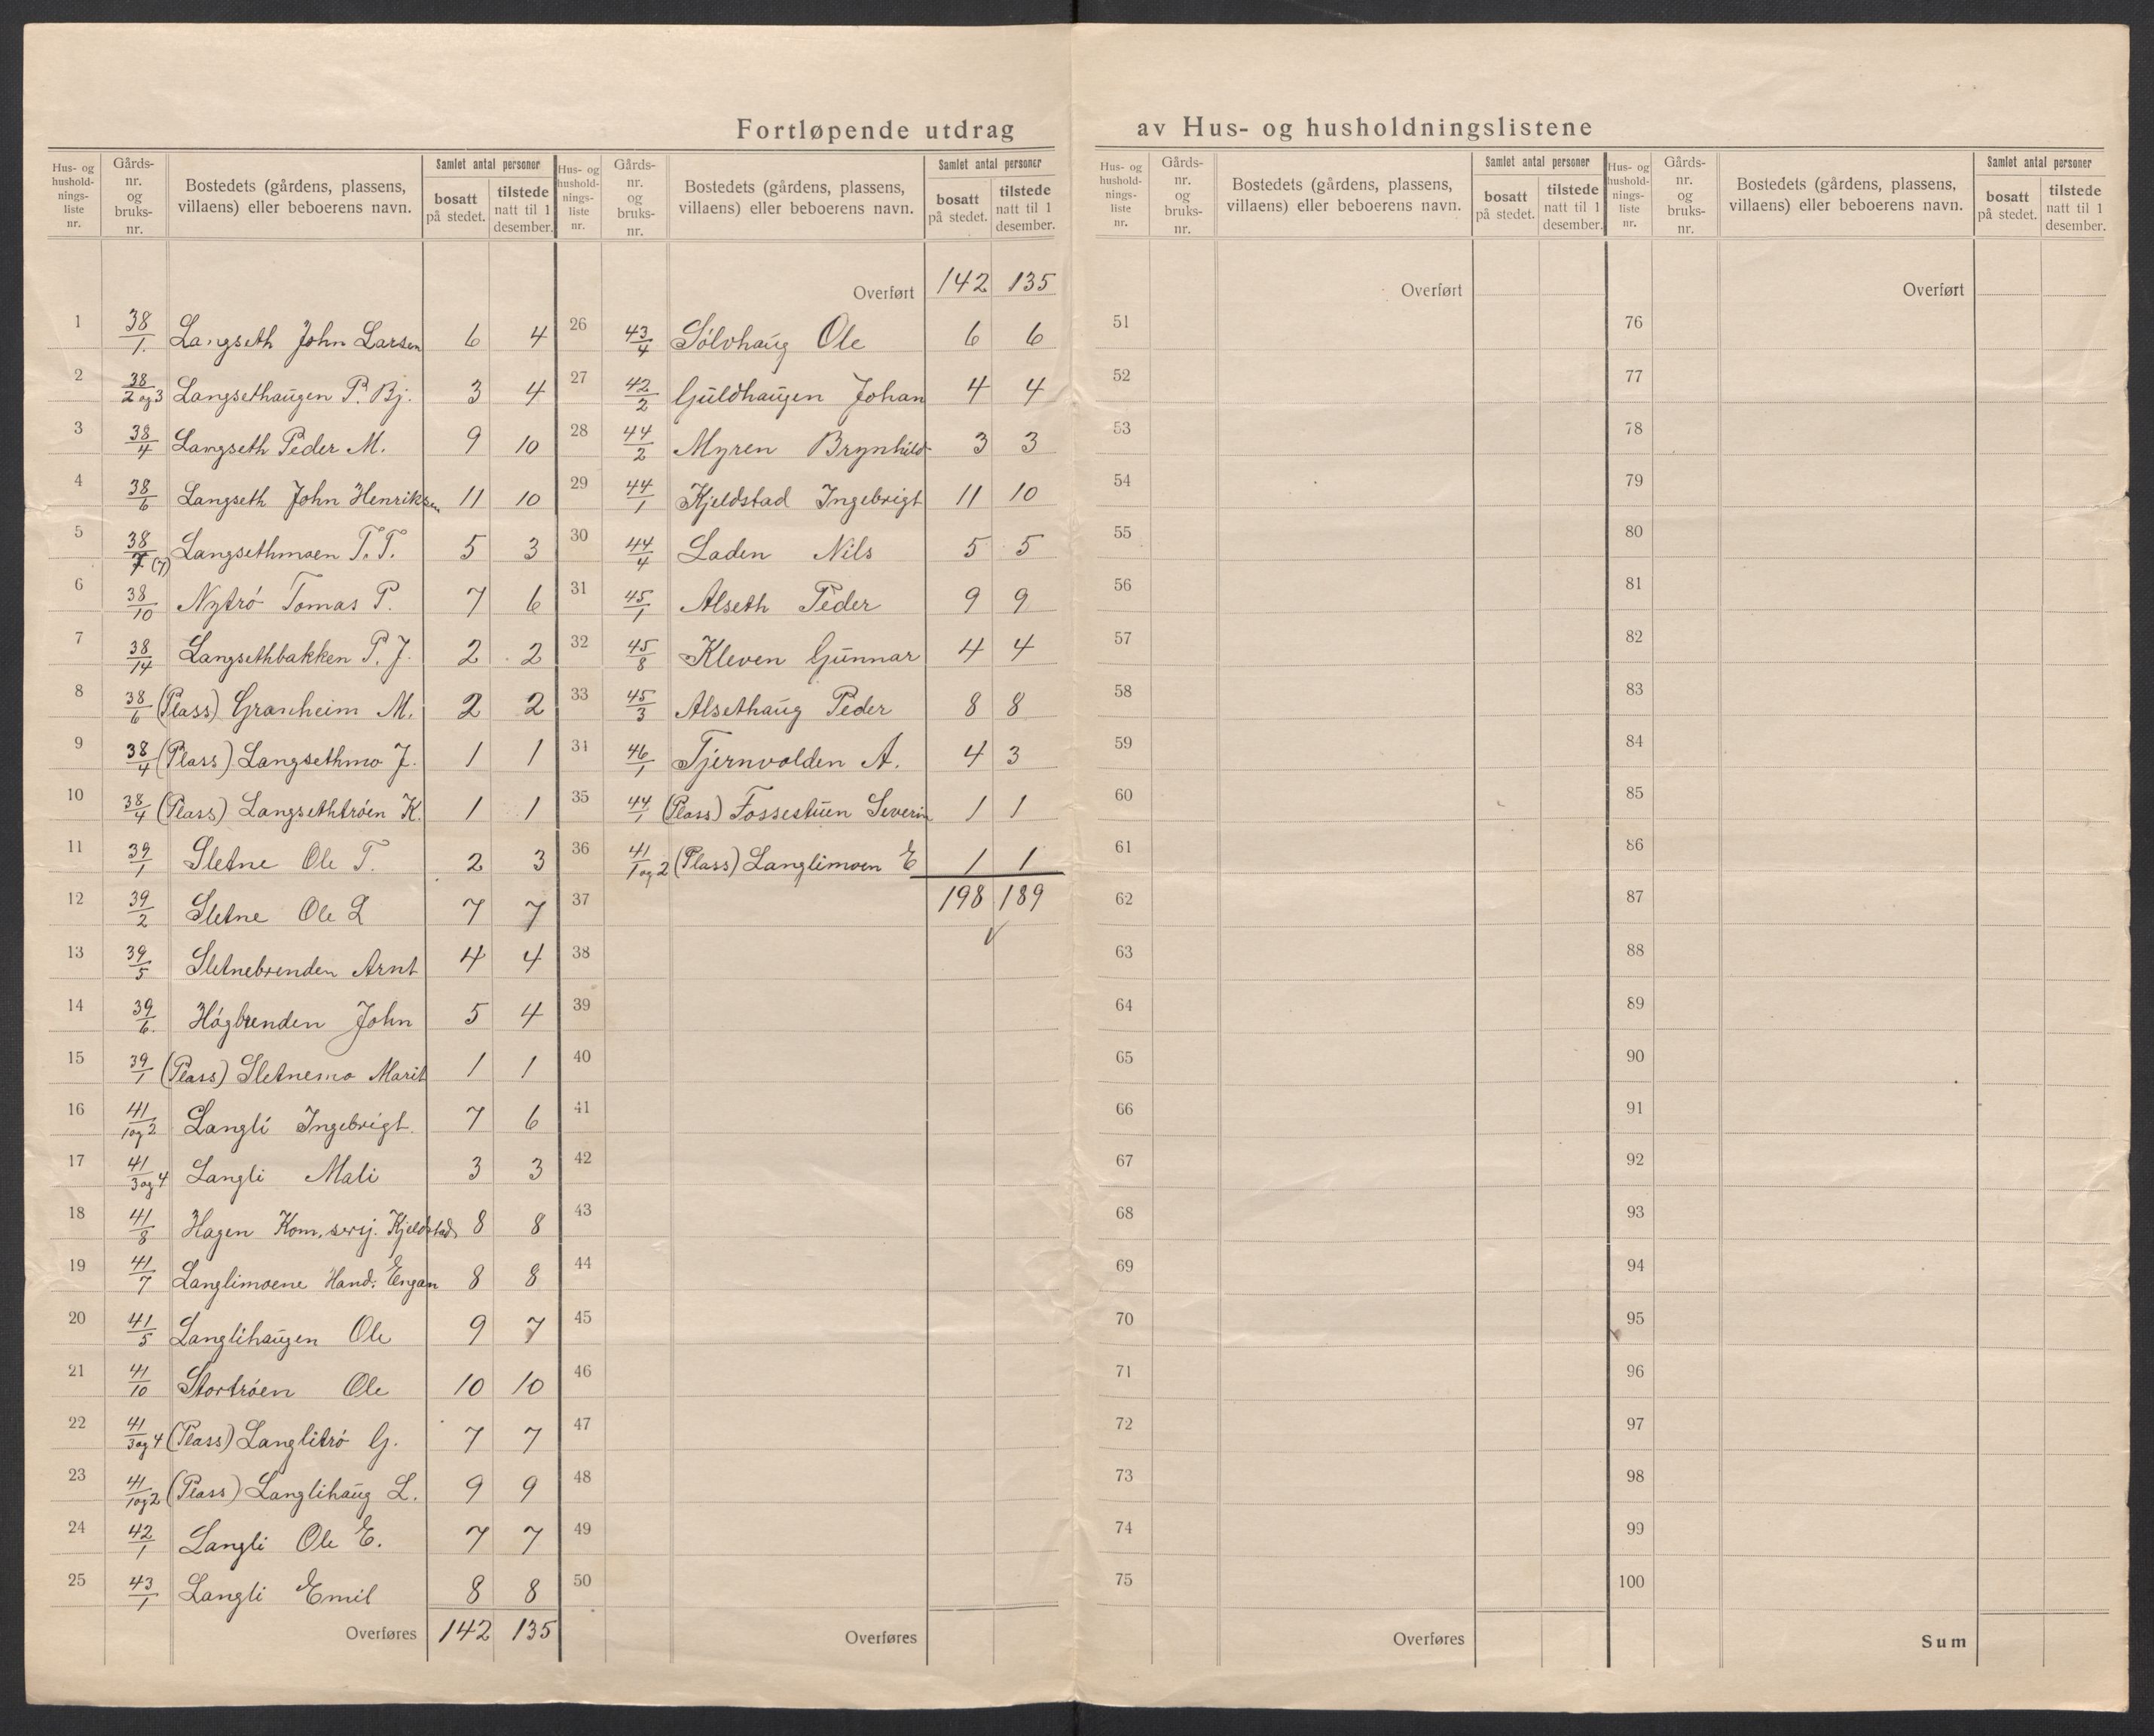 Fortløpende utdrag av Hus- og husholdningslistene
Hus- og hushold- nings- liste nr. | Gårds- nr. og bruks- nr. | Bostedets (gårdens, plassens, villaens) eller beboerens navn. | Samlet antal personer | bosatt på stedet. | tilstede natt til 1 desember.
1 38/1. Langseth John Larsen 6 4
2 38/2 og 3 Langsethaugen P. Bj. 3 4
3 38/4 Langseth Peder M. 9 10
4 38/6 Langseth John Henriksen 11 10
5 38/7 (7) Langsethmoen T. T. 5 3
6 38/10 Nytrø Tomas P. 7 6
7 38/14 Langsethbakken P. J. 2 2
8 38/6 (Plass) Granheim M. 2 2
9 38/4 (Plass) Langsethmo J. 1 1
10 38/4 (Plass) Langsethtrøen K. 1 1
11 39/1 Sletne Ole T. 2 3
12 39/2 Sletne Ole L 7 7
13 39/5 Sletnebrenden Arnt 4 4
14 39/6. Høgbrenden John 5 4
15 39/1 (Plass) Sletnemo Marit 1 1
16 41/1 og 2 Langli Ingebrigt. 7 6
17 41/3 og 4 Langli Mali 3 3
18 41/8 Hagen Kom. sersj. Kjeldstad 8 8
19 41/7 Langlimoene Hand. Engan 8 8
20 41/5 Langlihaugen Ole 9 7
21 41/10 Stortrøen Ole 10 10
22 41/3 og 4 (Plass) Langlitrø G. 7 7
23 41/1 og 2 (Plass) Langlihaug L. 9 9
24 42/1 Langli Ole E. 7 7
25 43/1 Langli Emil 8 8
Overføres 142 135
Hus- og hushold- nings- liste nr. | Gårds- nr. og bruks- nr. | Bostedets (gårdens, plassens, villaens) eller beboerens navn. | Samlet antal personer | bosatt på stedet. | tilstede natt til 1 desember.
Overført 142 135
26 43/4 Sølvhaug Ole 6 6
27 42/2 Guldhaugen Johan 4 4
28 44/2 Myren Brynhild 3 3
29 44/1 Kjeldstad Ingebrigt 11 10
30 44/4 Laden Nils 5 5
31 45/1 Alseth Peder 9 9
32 45/8 Kleven Gunnar 4 4
33 45/3 Alsethaug Peder 8 8
34 46/1 Tjernvolden A. 4 3
35 44/1 (Plass) Fossestuen Severin 1 1
36 41/1 og 2 (Plass) Langlimoen E 1 1
37 198 189
38
39
40
41
42
43
44
45
46
47
48
49
50
Overføres
Hus- og hushold- nings- liste nr. | Gårds- nr. og bruks- nr. | Bostedets (gårdens, plassens, villaens) eller beboerens navn. | Samlet antal personer | bosatt på stedet. | tilstede natt til 1 desember.
Overført
51
52
53
54
55
56
57
58
59
60
61
62
63
64
65
66
67
68
69
70
71
72
73
74
75
Overføres
Hus- og hushold- nings- liste nr. | Gårds- nr. og bruks- nr. | Bostedets (gårdens, plassens, villaens) eller beboerens navn. | Samlet antal personer | bosatt på stedet. | tilstede natt til 1 desember.
Overført
76
77
78
79
80
81
82
83
84
85
86
87
88
89
90
91
92
93
94
95
96
97
98
99
100
Sum